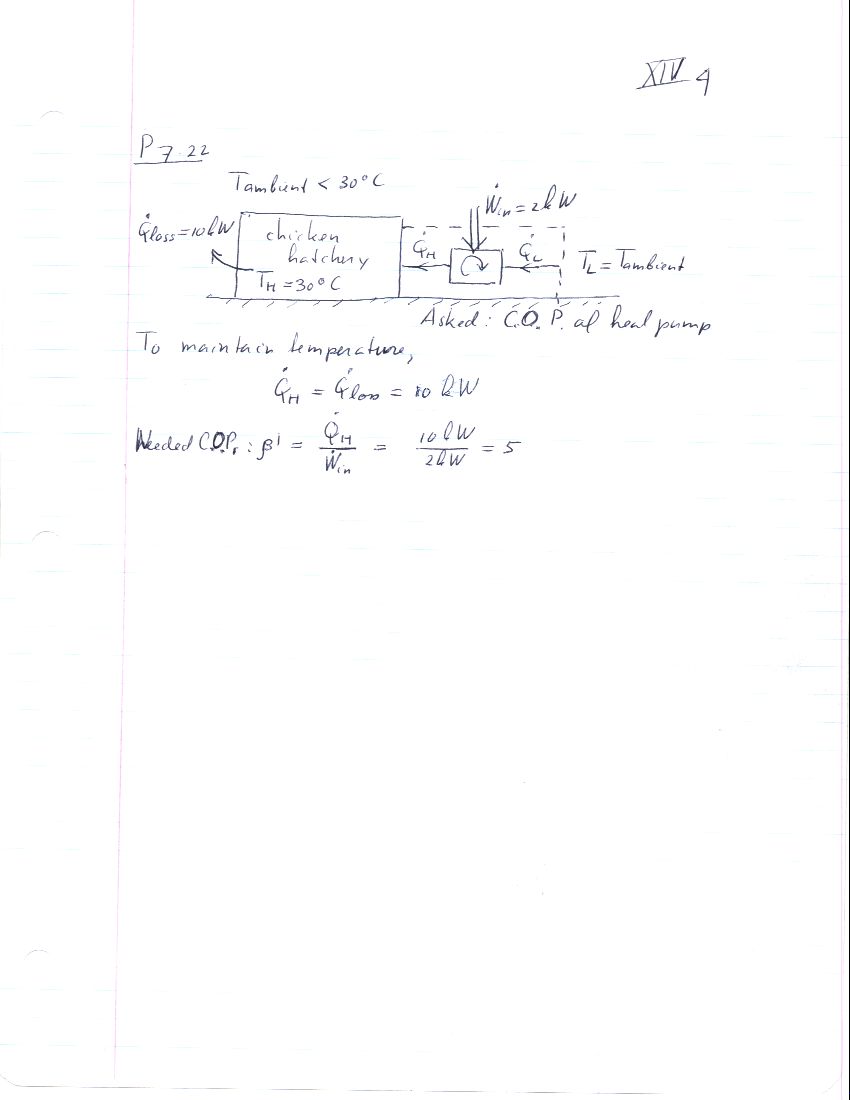 XIV 4
P 7-22
Tambient < 30°C
Ẇin = 2kW
Q̇loss = 10kW
chicken
hatchery
TH = 30°C
Q̇H
Q̇L
TL = Tambient
Asked: C.O.P. of heat pump
To maintain temperature,
Q̇H = Q̇loss = 10 kW
Needed C.O.P.: β' = Q̇H / Ẇin = 10 kW / 2 kW = 5